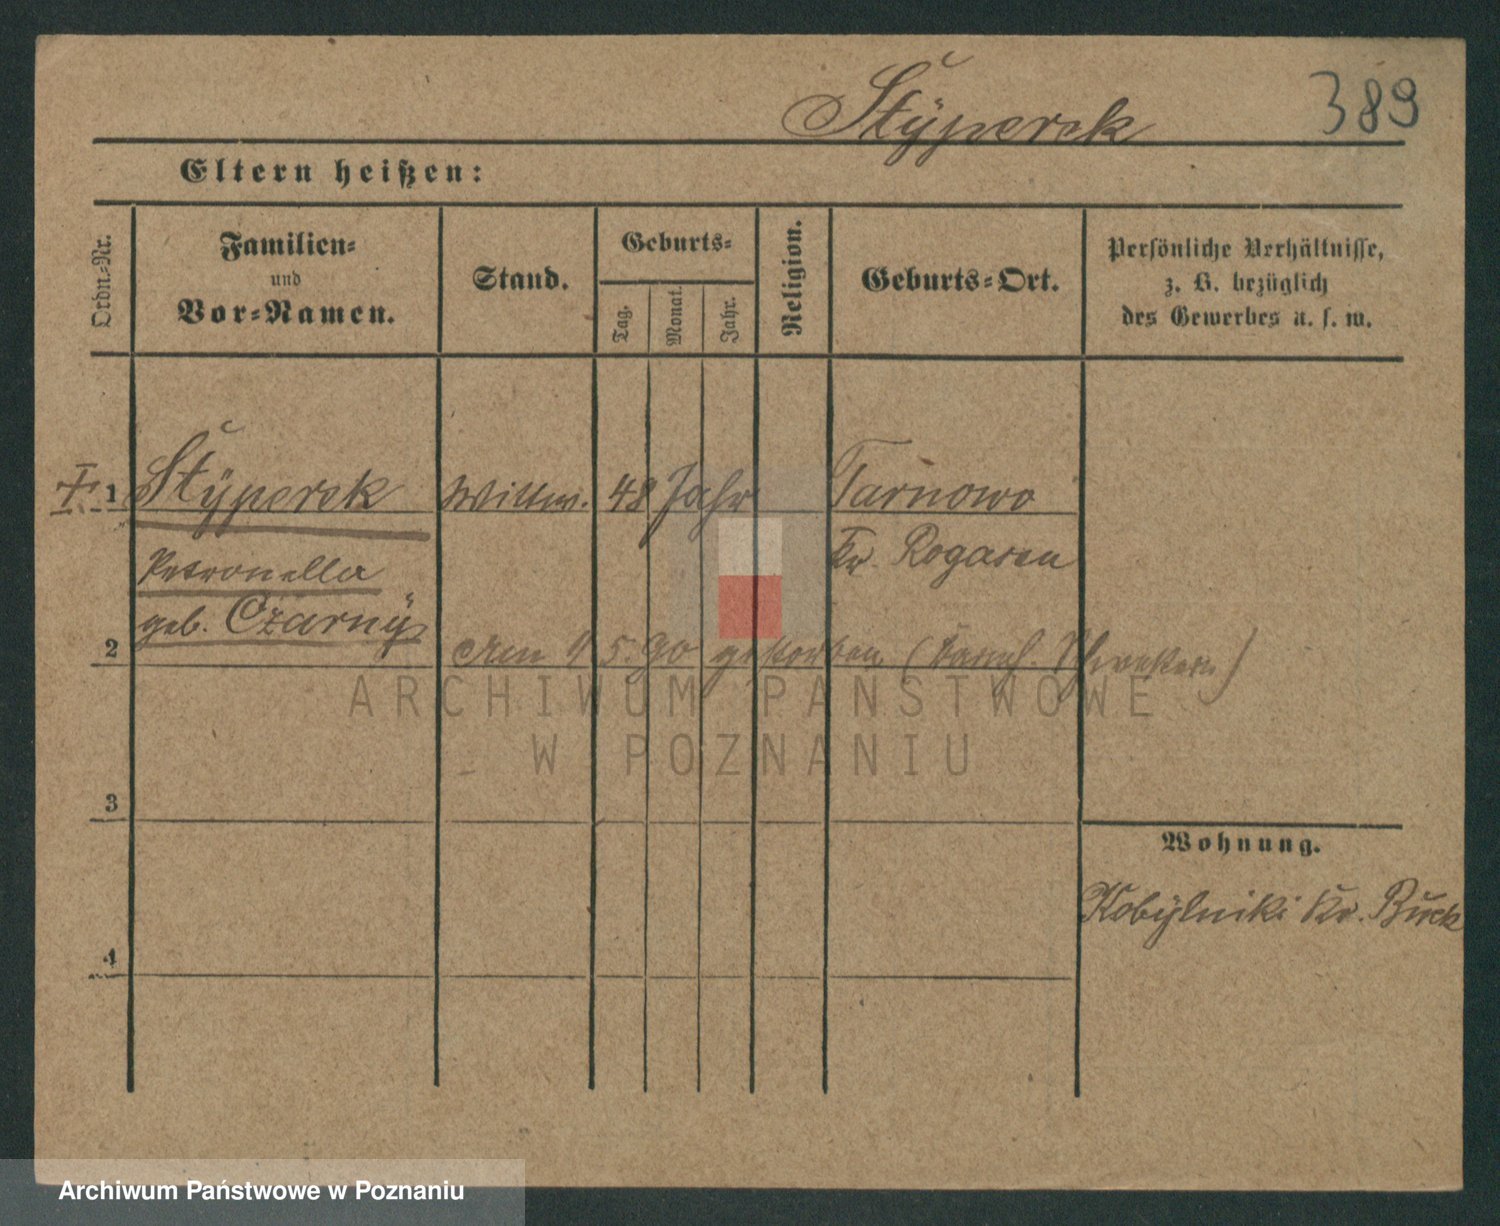 Stÿperek 389
Eltern heißen:
Ordn.=Nr.
Familien=
und
Vor=Namen.
Stand.
Geburts=
Tag.
Monat.
Jahr.
Religion.
Geburts=Ort.
Persönliche Verhältnisse,
z. B. bezüglich
des Gewerbes u. s. w.
1 Stÿperek Wittw. 48 Jahr Tarnowo
Petronella Kr. Rogasen
geb. Czarnÿ
2 5. 90 gestorben
ARCHIWUM PAŃSTWOWE
W POZNANIU
3
Wohnung.
Kobÿlniki Kr. Buck
4
Archiwum Państwowe w Poznaniu